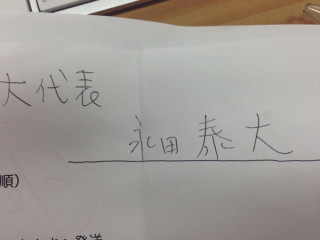 大代表
永田泰大
順）